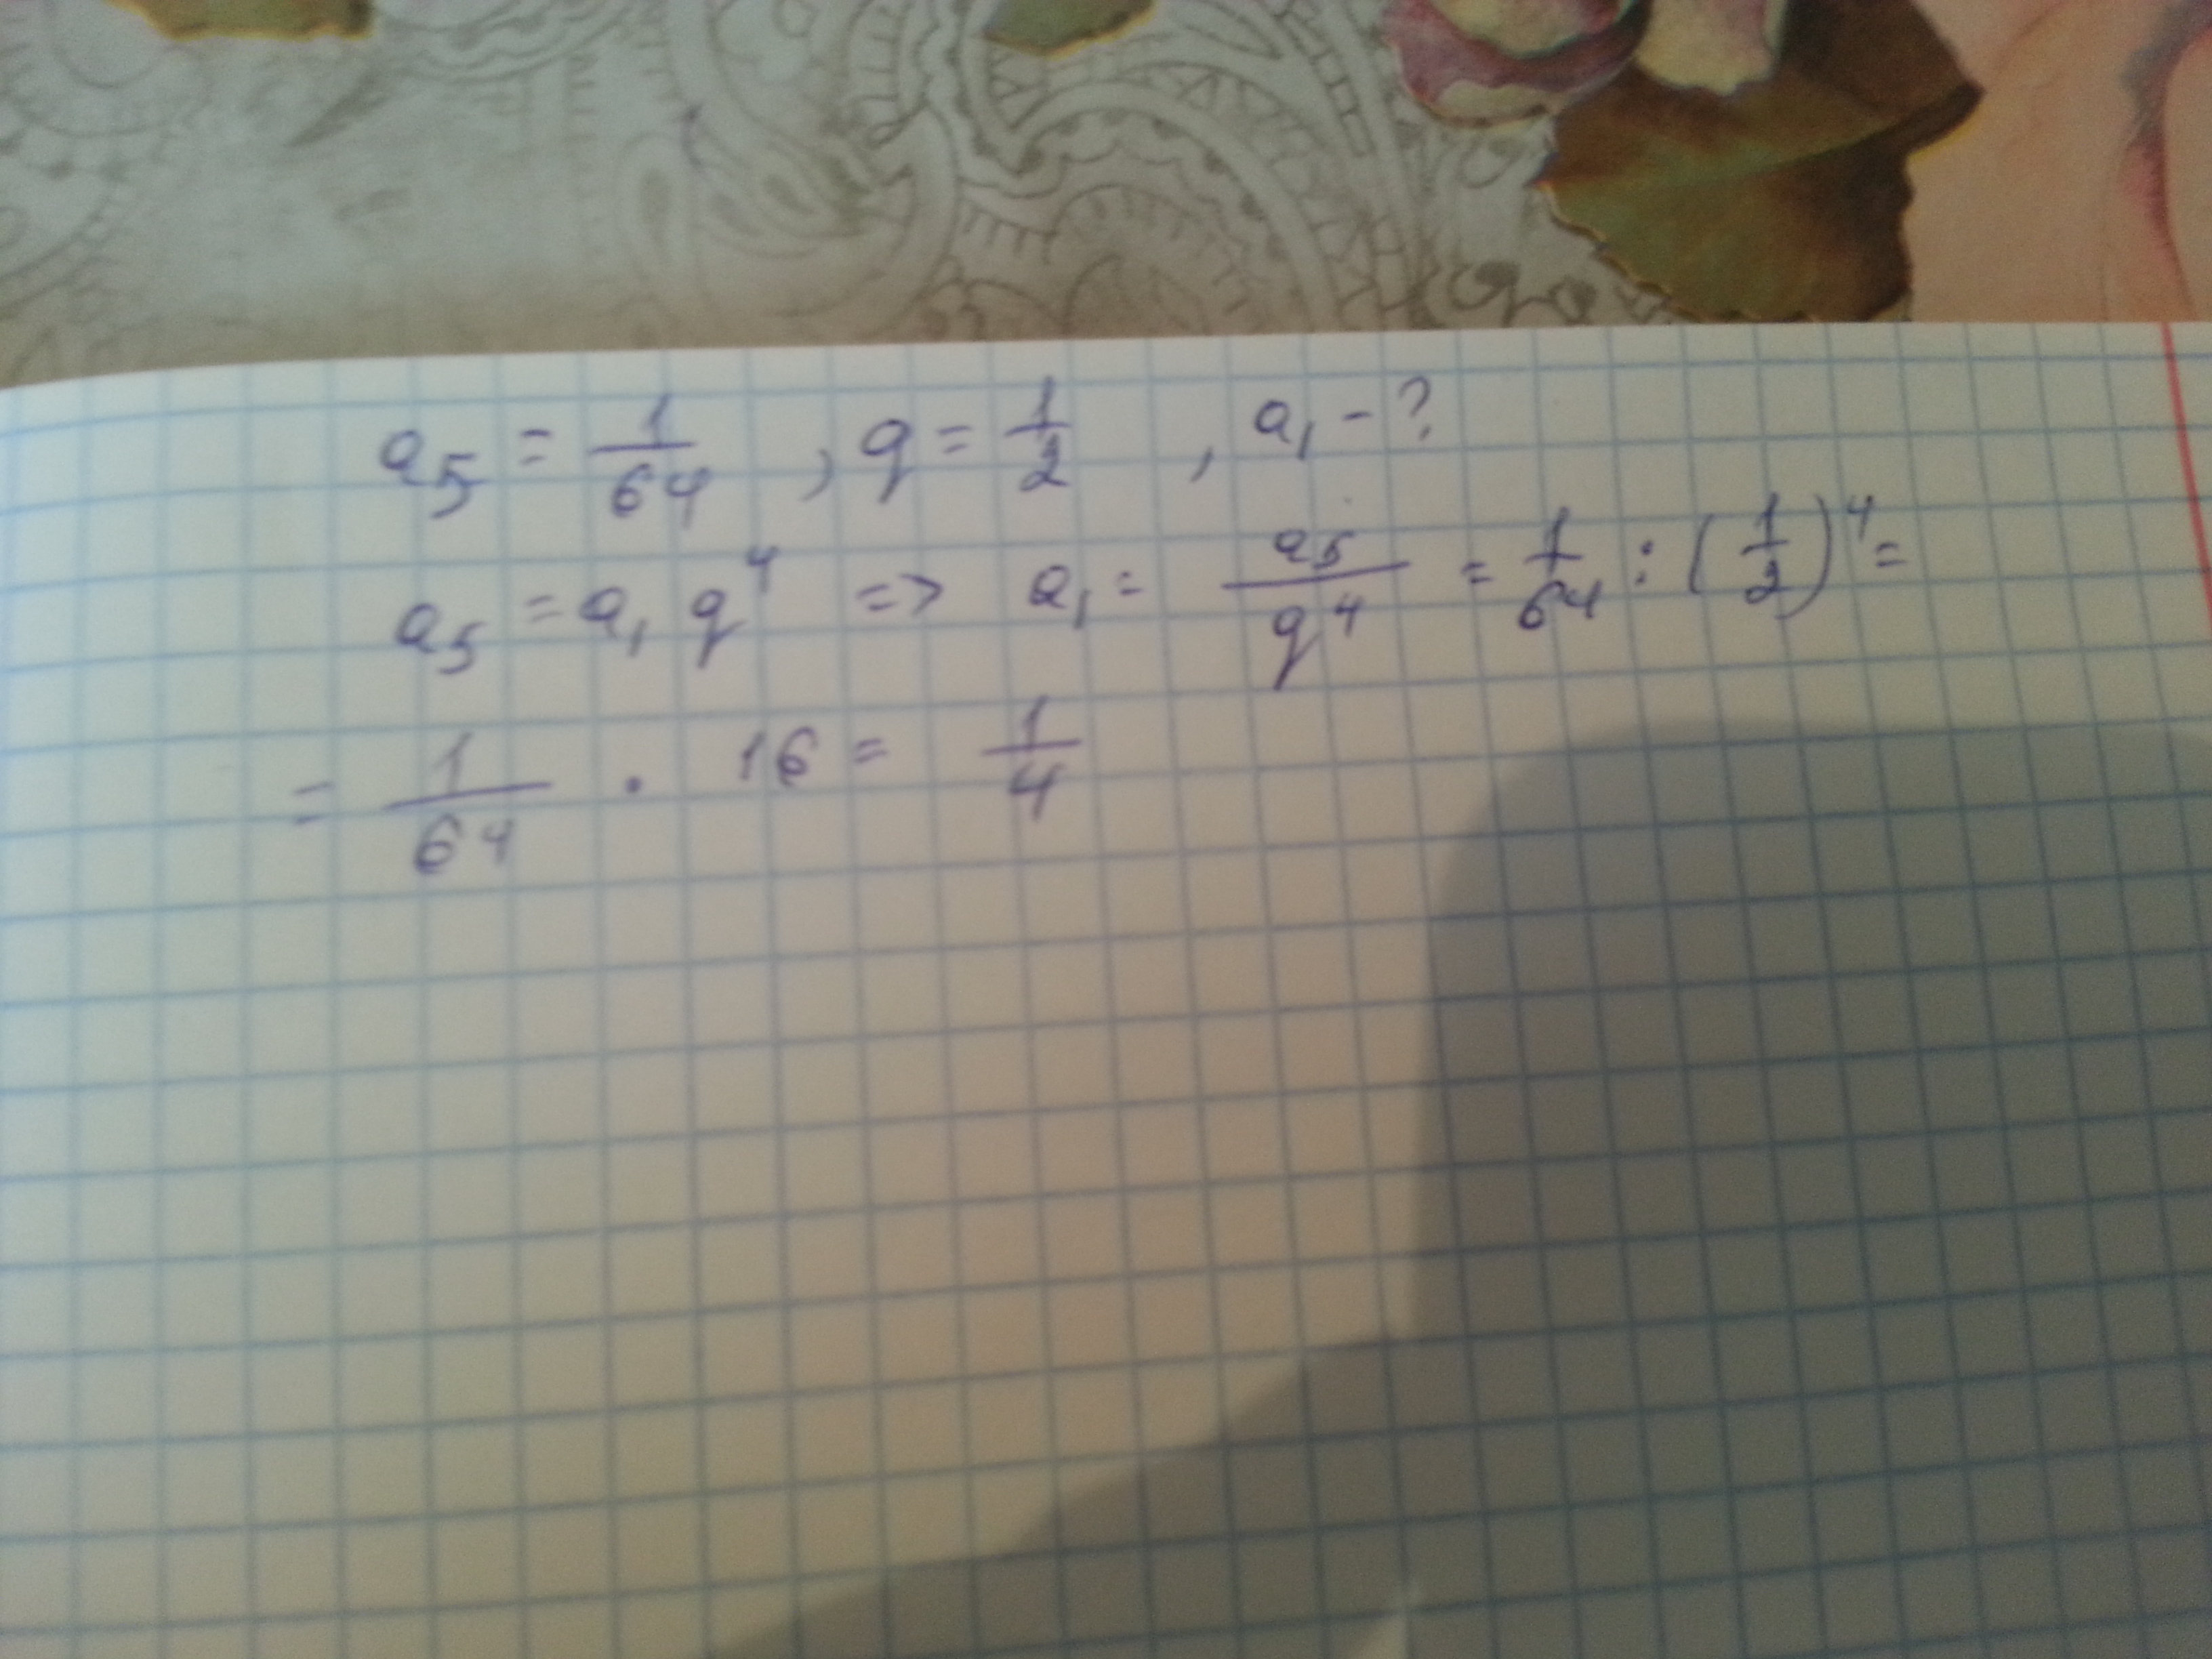 a₅ = 1/64 , q = 1/2 , a₁ - ?
a₅ = a₁ q⁴ => a₁ = a₅/q⁴ = 1/64 : (1/2)⁴ =
= 1/64 · 16 = 1/4